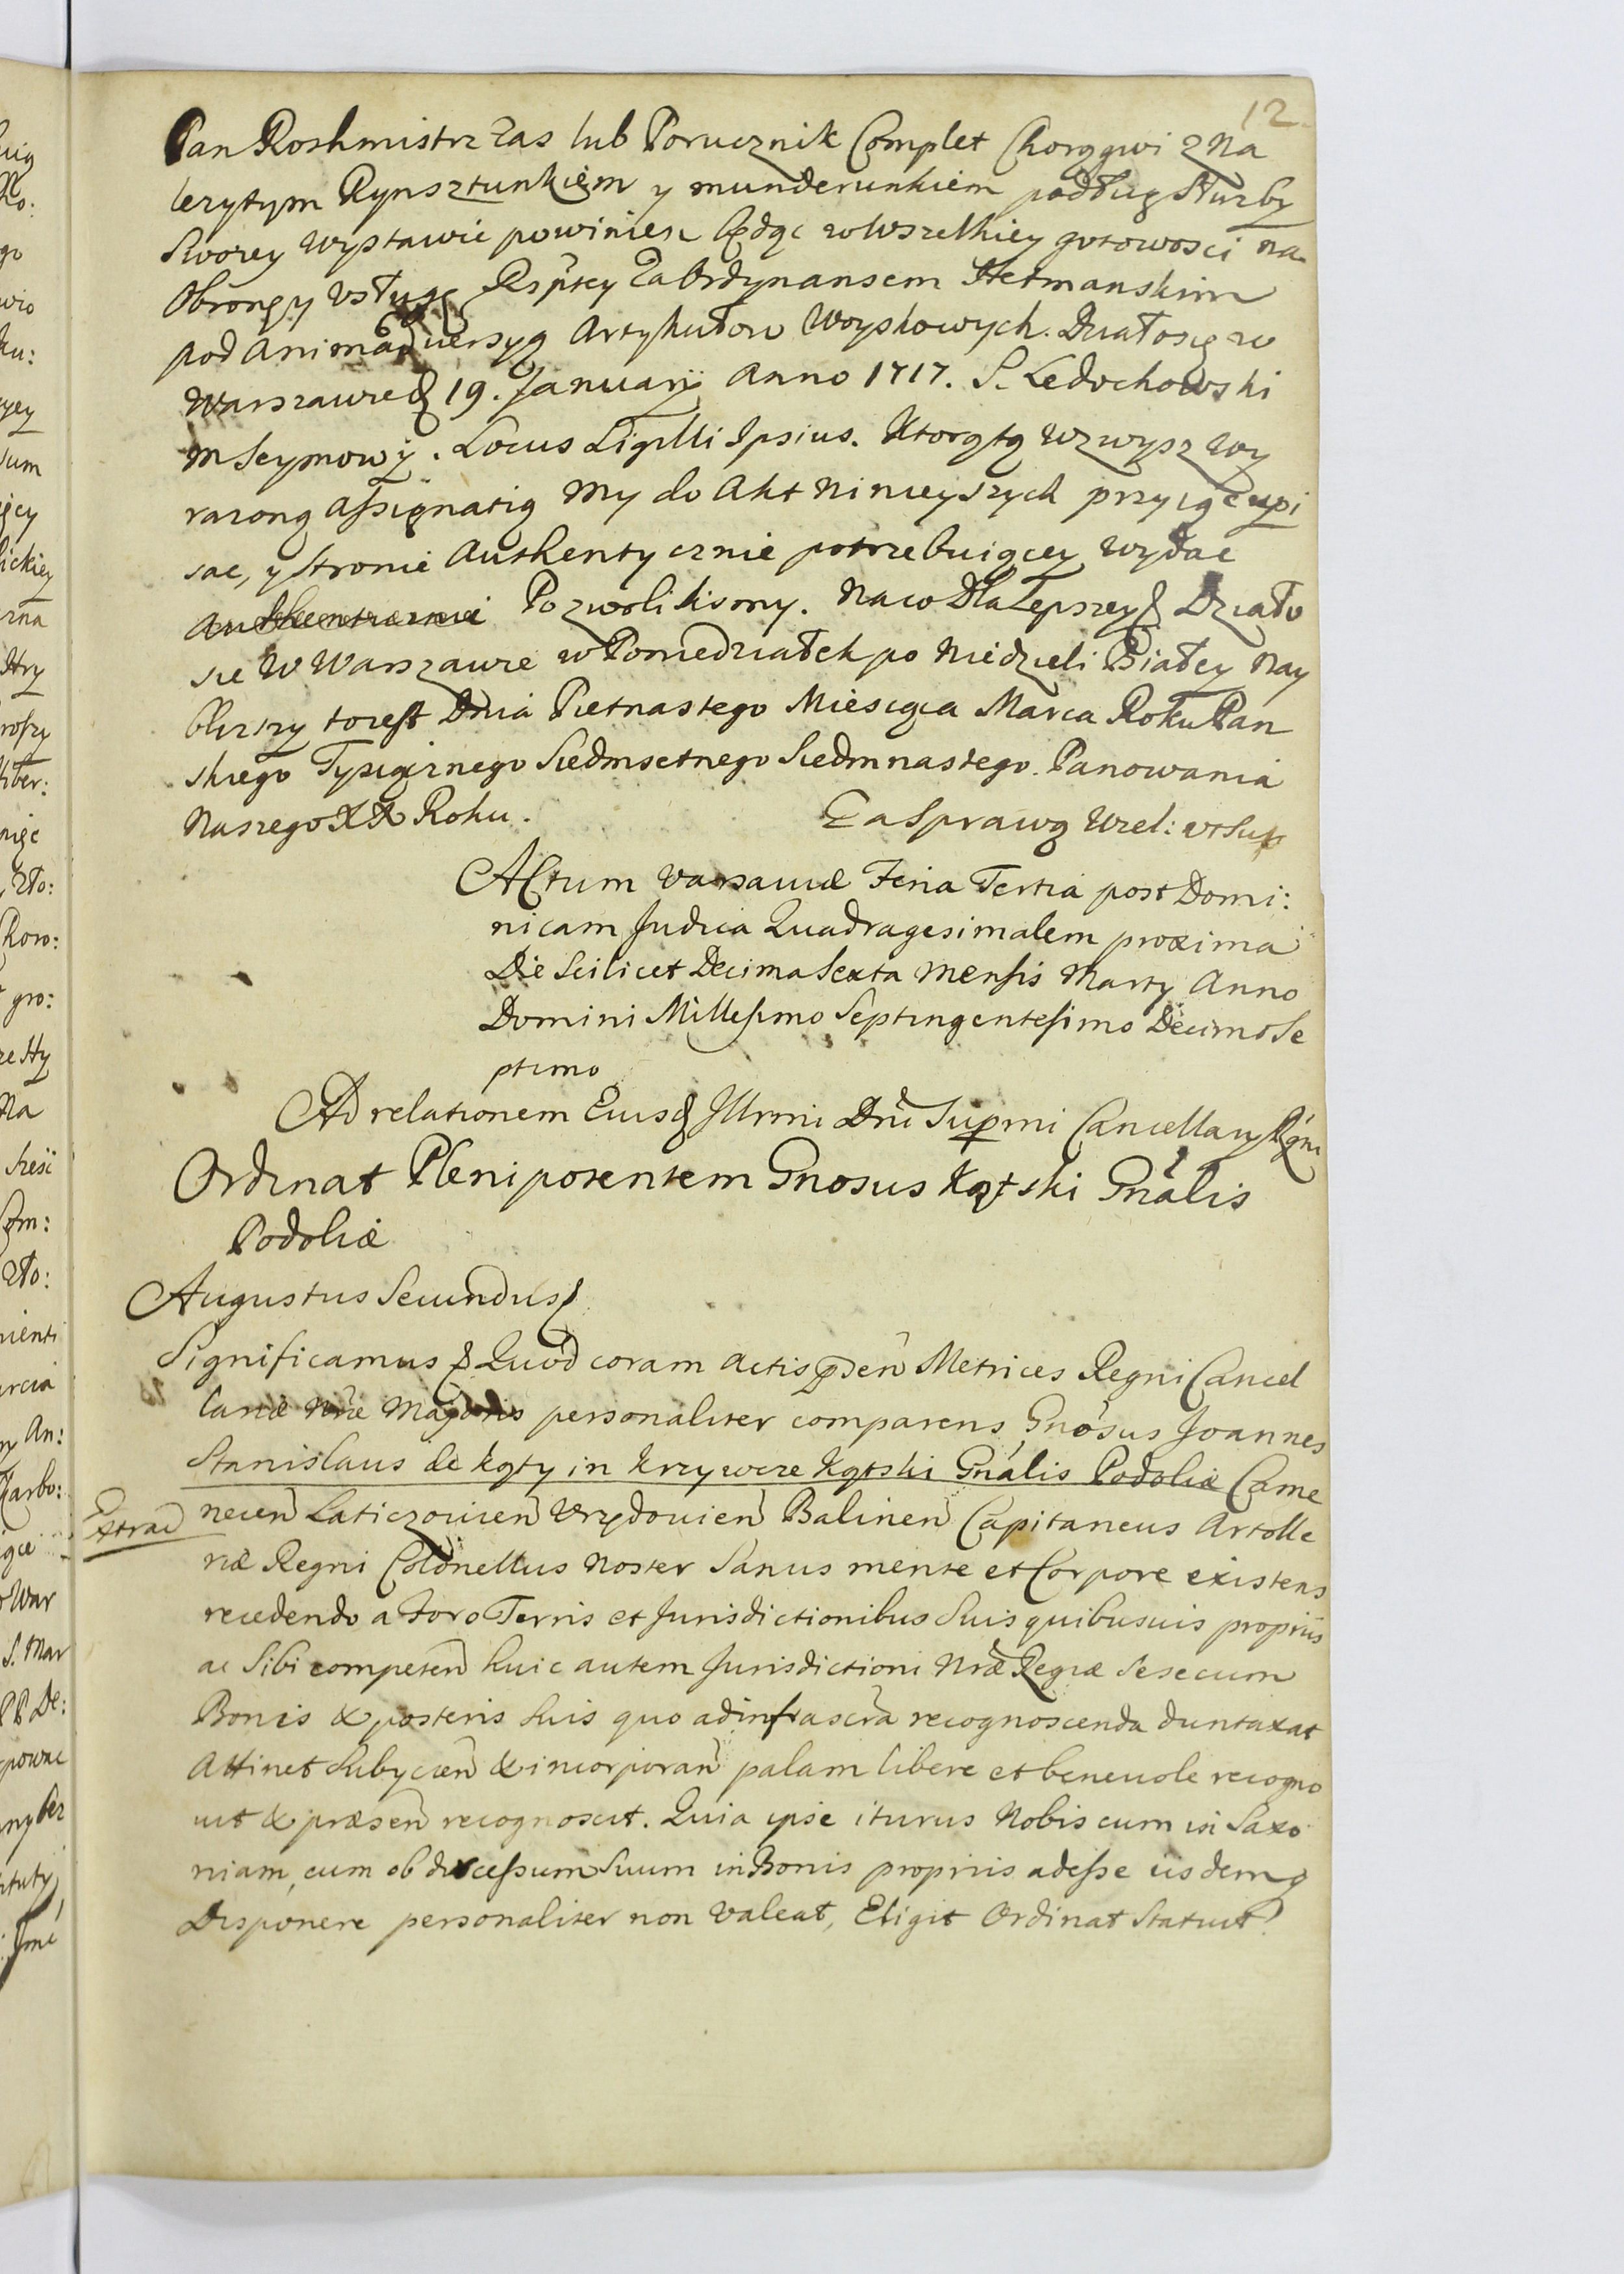 12.
Pan Roshmistrz zas lub Porucznik Complet Chorągwi z Na
lezytym Rynsztunkięm y munderunkiem podług Słuzby
Swoiey wystawic powinien będąc w Wszelkiey gotowosci na
Obronę y Vsługę Rsptey Za Ordynansem Hetmanskim
pod animadwersyą Artykułow Woyskowych. Działosię w
Warszawie & 19. Januarÿ Anno 1717. S. Ledochowski
M Seymowÿ. Locus Sigilli Ipsius. Ktorątą wzwysz wy
razoną assignatią My do Akt Ninieyszych przyiąc wpi
sac, y stronie Authentycznie potrzebuiącey wydac
Pozwolilismy. Naco Dla Lepszey & Działo
sie W Warszawie w Poniedziałek po Niedzieli Białey Nay
blizszy toiest Dnia Pietnastego Miesiąca Marca Roku Pan
skiego Tysiącznego Siedmsetnego Siedmnastego. Panowania
Naszego XX Roku. Za Sprawą Wiel: vt Sup
Actum Varsaviæ Feria Tertia post Domi:
nicam Judica Quadragesimalem proxima
Die Scilicet Decima Sexta Mensis Marty Anno
Domini Millesimo Septingentesimo Decimo Se
ptimo
Ad relationem Eiusd Illrmi Dni Supmi Cancellary Rgni
Ordinat Plenipotentem Gnosus Kątski Gnalis
Podoliæ
Augustus Secundus &
Significamus & Quod coram Actis pden Metrices Regni Cancel
lariæ Nræ Majoris personaliter comparens Gnosus Joannes
Stanislaus de Kąty in Krzywcze Kątski Gnalis Podoliæ Came
Extrad
necen Laticzovien Vrzdovien Balinen Capitaneus Artolle
riæ Regni Colonellus Noster Sanus mente et Corpore existens
recedendo a Foro Terris et Jurisdictionibus Suis quibusuis proprÿs
ac Sibi competen huic autem Jurisdictioni Nræ Regiæ Se se cum
Bonis & posteris Suis quo ad infrascra recognoscenda duntaxat
Attinet Subycien & incorporan palam libere et beneuole recogno
uit & præsen recognoscit. Quia ipse iturus Nobis cum in Saxo
niam, cum ob discessum Suum in Bonis proprÿs adesse iisdemq
Disponere personaliter non valeat, Eligit Ordinat Statuit